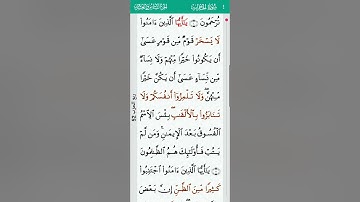 تُرْحَمُونَ ۝ يَٰٓأَيُّهَا ٱلَّذِينَ ءَامَنُوا۟
لَا يَسْخَرْ قَوْمٌ مِّن قَوْمٍ عَسَىٰٓ
أَن يَكُونُوا۟ خَيْرًا مِّنْهُمْ وَلَا نِسَآءٌ
مِّن نِّسَآءٍ عَسَىٰٓ أَن يَكُنَّ خَيْرًا
مِّنْهُنَّ ۖ وَلَا تَلْمِزُوٓا۟ أَنفُسَكُمْ وَلَا
تَنَابَزُوا۟ بِٱلْأَلْقَٰبِ ۖ بِئْسَ ٱلِٱسْمُ
ٱلْفُسُوقُ بَعْدَ ٱلْإِيمَٰنِ ۚ وَمَن لَّمْ
يَتُبْ فَأُو۟لَٰٓئِكَ هُمُ ٱلظَّٰلِمُونَ
۝ يَٰٓأَيُّهَا ٱلَّذِينَ ءَامَنُوا۟ ٱجْتَنِبُوا۟
كَثِيرًا مِّنَ ٱلظَّنِّ إِنَّ بَعْضَ